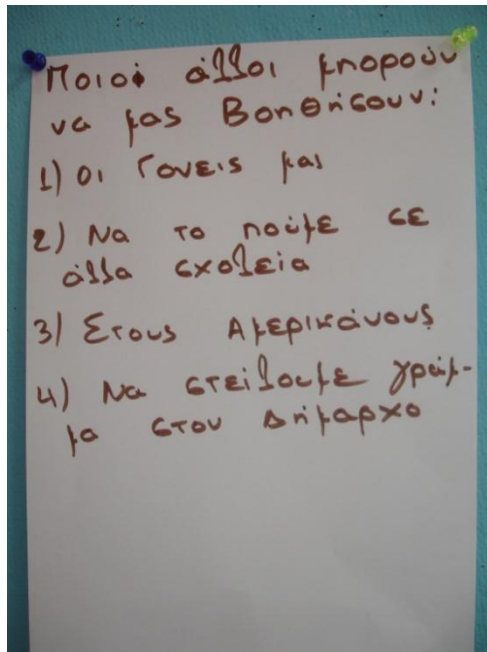 Ποιοι άλλοι μπορούν
να μας Βοηθήσουν:
1) Οι Γονείς μας
2) Να το πούμε σε
άλλα σχολεία
3) Στους Αμερικάνους
4) Να στείλουμε γράμ-
μα στον Δήμαρχο